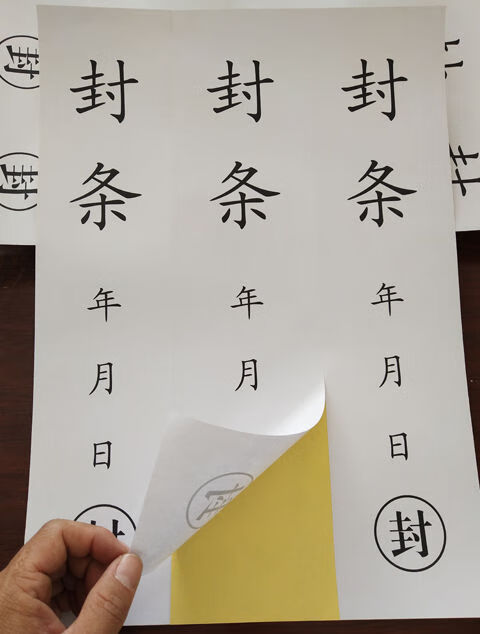 封条年月日封
封条年月封
封条年月日封
封
封
封